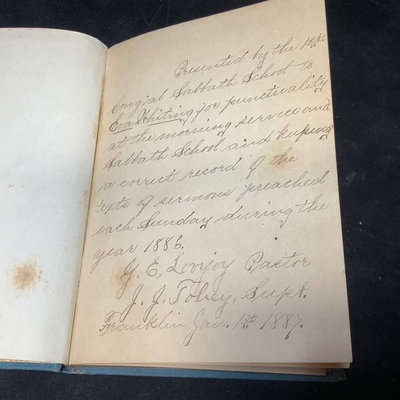 Presented by the 1st.
Cong'al Sabbath School to
Eva Whiting for punctuality
at the morning service and
Sabbath School and keeping
a correct record of the
texts of sermons preached
each Sunday during the
year 1886.
G. E. Lovejoy Pastor
J. J. Tobey, Supt.
Franklin Jan. 1st 1887.